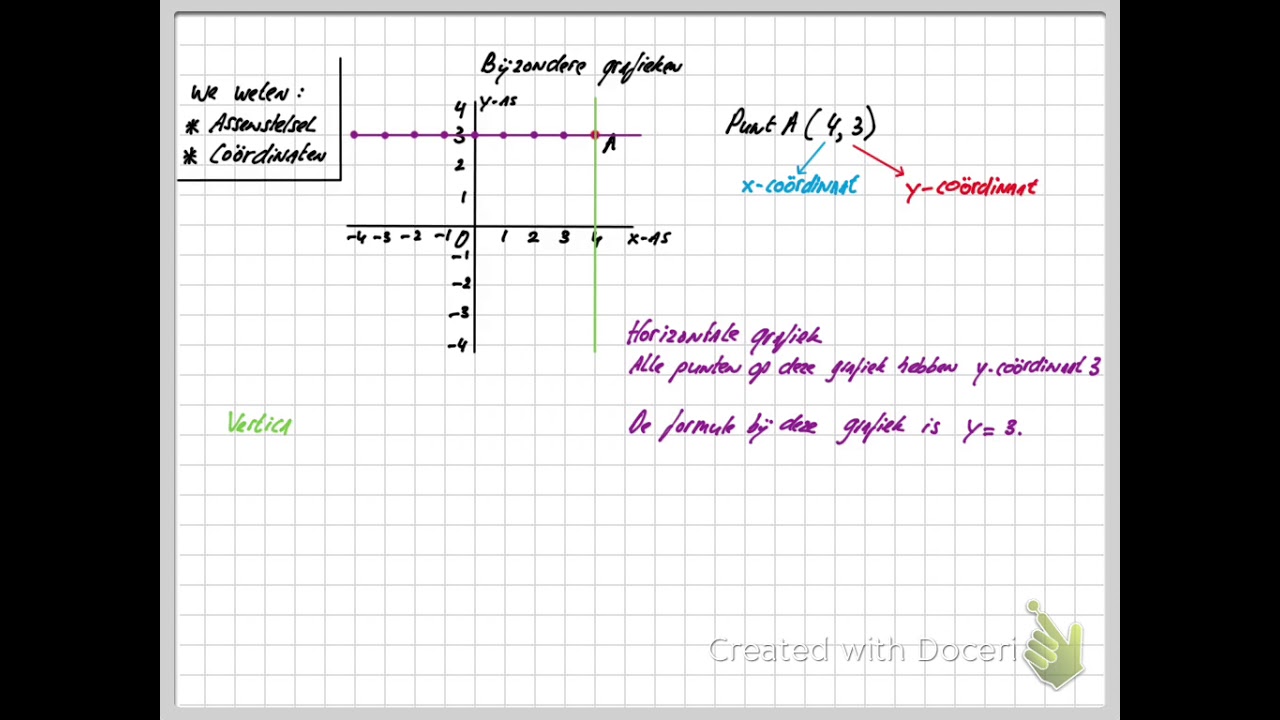 Bijzondere grafieken
We weten:
* Assenstelsel
* Coördinaten
Y-AS
4
3
2
1
-4 -3 -2 -1 0 1 2 3 4 X-AS
-1
-2
-3
-4
A
Punt A (4,3)
x-coördinaat
y-coördinaat
Horizontale grafiek
Alle punten op deze grafiek hebben y-coördinaat 3
De formule bij deze grafiek is y = 3.
Vertica
Created with Doceri